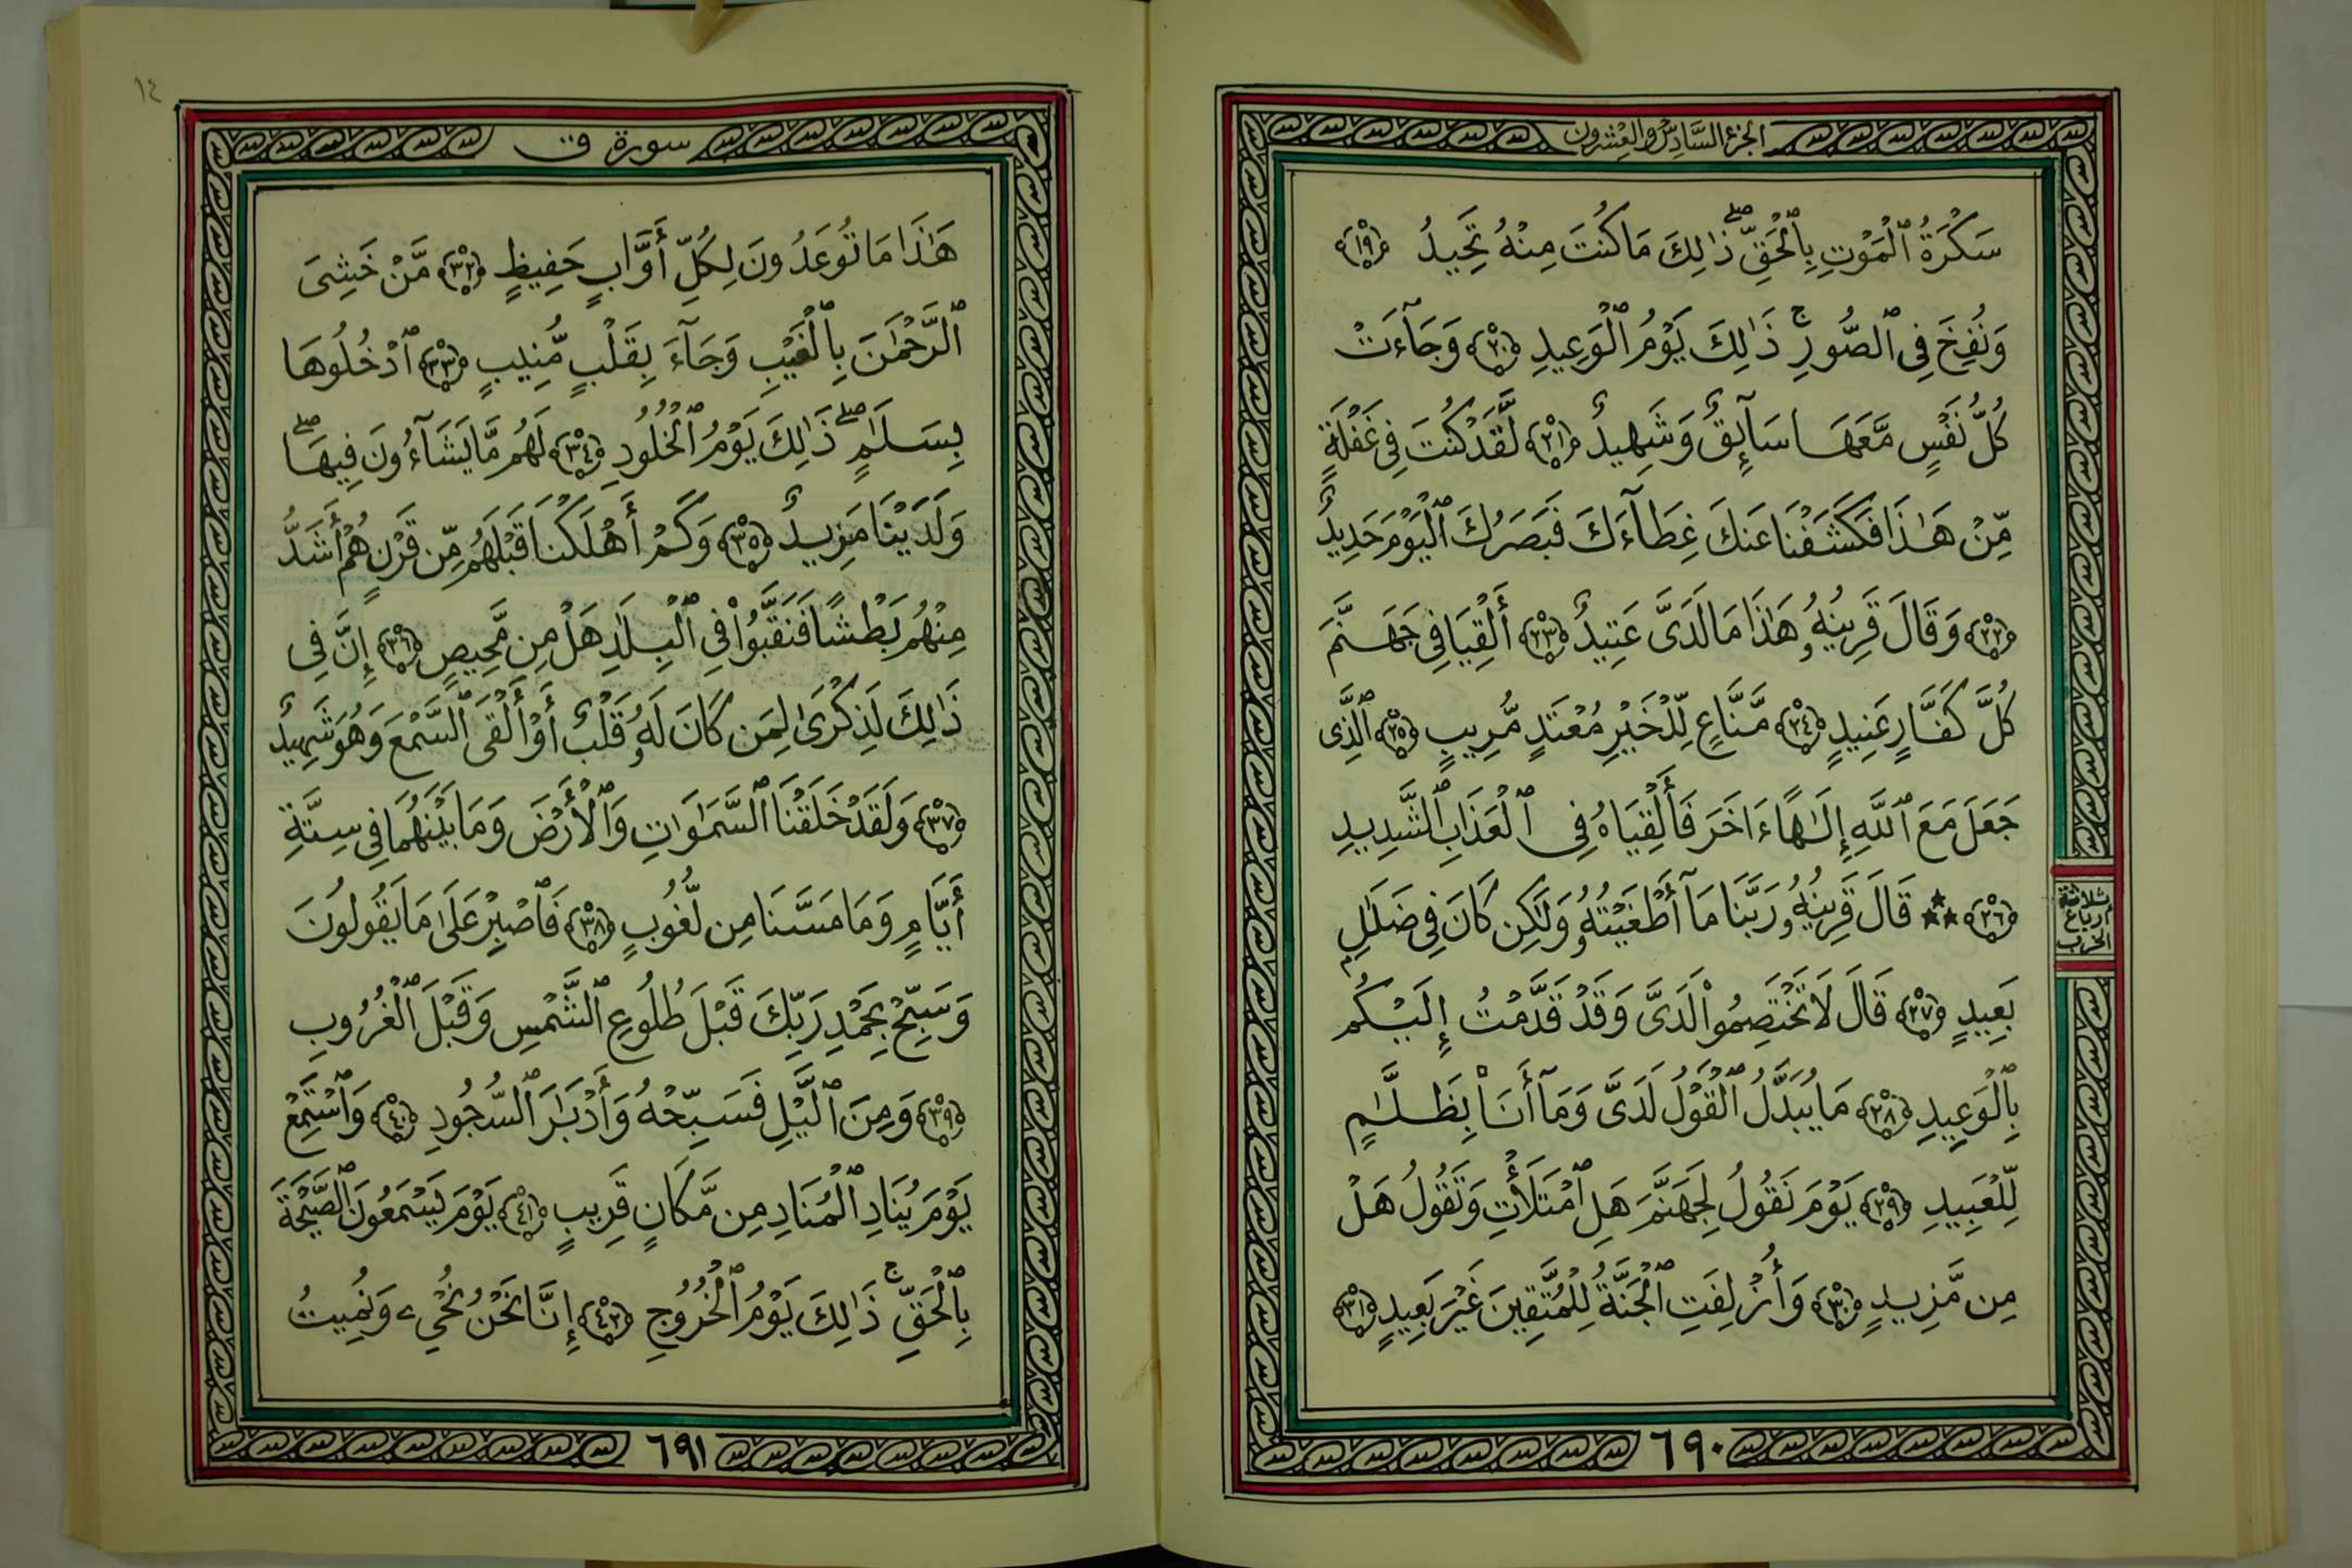 الجزء السَّادِس والعِشرون
سَكۡرَةُ ٱلۡمَوۡتِ بِٱلۡحَقِّۖ ذَٰلِكَ مَا كُنتَ مِنۡهُ تَحِيدُ ﴿١٩﴾
وَنُفِخَ فِي ٱلصُّورِۚ ذَٰلِكَ يَوۡمُ ٱلۡوَعِيدِ ﴿٢٠﴾ وَجَآءَتۡ
كُلُّ نَفۡسٖ مَّعَهَا سَآئِقٞ وَشَهِيدٞ ﴿٢١﴾ لَّقَدۡ كُنتَ فِي غَفۡلَةٖ
مِّنۡ هَٰذَا فَكَشَفۡنَا عَنكَ غِطَآءَكَ فَبَصَرُكَ ٱلۡيَوۡمَ حَدِيدٞ
﴿٢٢﴾ وَقَالَ قَرِينُهُۥ هَٰذَا مَا لَدَيَّ عَتِيدٌ ﴿٢٣﴾ أَلۡقِيَا فِي جَهَنَّمَ
كُلَّ كَفَّارٍ عَنِيدٖ ﴿٢٤﴾ مَّنَّاعٖ لِّلۡخَيۡرِ مُعۡتَدٖ مُّرِيبٍ ﴿٢٥﴾ ٱلَّذِي
جَعَلَ مَعَ ٱللَّهِ إِلَٰهًا ءَاخَرَ فَأَلۡقِيَاهُ فِي ٱلۡعَذَابِ ٱلشَّدِيدِ
﴿٢٦﴾ ٭٭٭ قَالَ قَرِينُهُۥ رَبَّنَا مَآ أَطۡغَيۡتُهُۥ وَلَٰكِن كَانَ فِي ضَلَٰلِۭ
بَعِيدٖ ﴿٢٧﴾ قَالَ لَا تَخۡتَصِمُواْ لَدَيَّ وَقَدۡ قَدَّمۡتُ إِلَيۡكُم
بِٱلۡوَعِيدِ ﴿٢٨﴾ مَا يُبَدَّلُ ٱلۡقَوۡلُ لَدَيَّ وَمَآ أَنَا۠ بِظَلَّٰمٖ
لِّلۡعَبِيدِ ﴿٢٩﴾ يَوۡمَ نَقُولُ لِجَهَنَّمَ هَلِ ٱمۡتَلَأۡتِ وَتَقُولُ هَلۡ
مِن مَّزِيدٖ ﴿٣٠﴾ وَأُزۡلِفَتِ ٱلۡجَنَّةُ لِلۡمُتَّقِينَ غَيۡرَ بَعِيدٍ ﴿٣١﴾
ثلاثة
أرباع
الحزب
٦٩٠
سورة ق
هَٰذَا مَا تُوعَدُونَ لِكُلِّ أَوَّابٍ حَفِيظٖ ﴿٣٢﴾ مَّنۡ خَشِيَ
ٱلرَّحۡمَٰنَ بِٱلۡغَيۡبِ وَجَآءَ بِقَلۡبٖ مُّنِيبٍ ﴿٣٣﴾ ٱدۡخُلُوهَا
بِسَلَٰمٖۖ ذَٰلِكَ يَوۡمُ ٱلۡخُلُودِ ﴿٣٤﴾ لَهُم مَّا يَشَآءُونَ فِيهَاۖ
وَلَدَيۡنَا مَزِيدٞ ﴿٣٥﴾ وَكَمۡ أَهۡلَكۡنَا قَبۡلَهُم مِّن قَرۡنٍ هُمۡ أَشَدُّ
مِنۡهُم بَطۡشٗا فَنَقَّبُواْ فِي ٱلۡبِلَٰدِ هَلۡ مِن مَّحِيصٍ ﴿٣٦﴾ إِنَّ فِي
ذَٰلِكَ لَذِكۡرَىٰ لِمَن كَانَ لَهُۥ قَلۡبٌ أَوۡ أَلۡقَى ٱلسَّمۡعَ وَهُوَ شَهِيدٞ
﴿٣٧﴾ وَلَقَدۡ خَلَقۡنَا ٱلسَّمَٰوَٰتِ وَٱلۡأَرۡضَ وَمَا بَيۡنَهُمَا فِي سِتَّةِ
أَيَّامٖ وَمَا مَسَّنَا مِن لُّغُوبٖ ﴿٣٨﴾ فَٱصۡبِرۡ عَلَىٰ مَا يَقُولُونَ
وَسَبِّحۡ بِحَمۡدِ رَبِّكَ قَبۡلَ طُلُوعِ ٱلشَّمۡسِ وَقَبۡلَ ٱلۡغُرُوبِ
﴿٣٩﴾ وَمِنَ ٱلَّيۡلِ فَسَبِّحۡهُ وَأَدۡبَٰرَ ٱلسُّجُودِ ﴿٤٠﴾ وَٱسۡتَمِعۡ
يَوۡمَ يُنَادِ ٱلۡمُنَادِ مِن مَّكَانٖ قَرِيبٖ ﴿٤١﴾ يَوۡمَ يَسۡمَعُونَ ٱلصَّيۡحَةَ
بِٱلۡحَقِّۚ ذَٰلِكَ يَوۡمُ ٱلۡخُرُوجِ ﴿٤٢﴾ إِنَّا نَحۡنُ نُحۡيِۦ وَنُمِيتُ
٦٩١